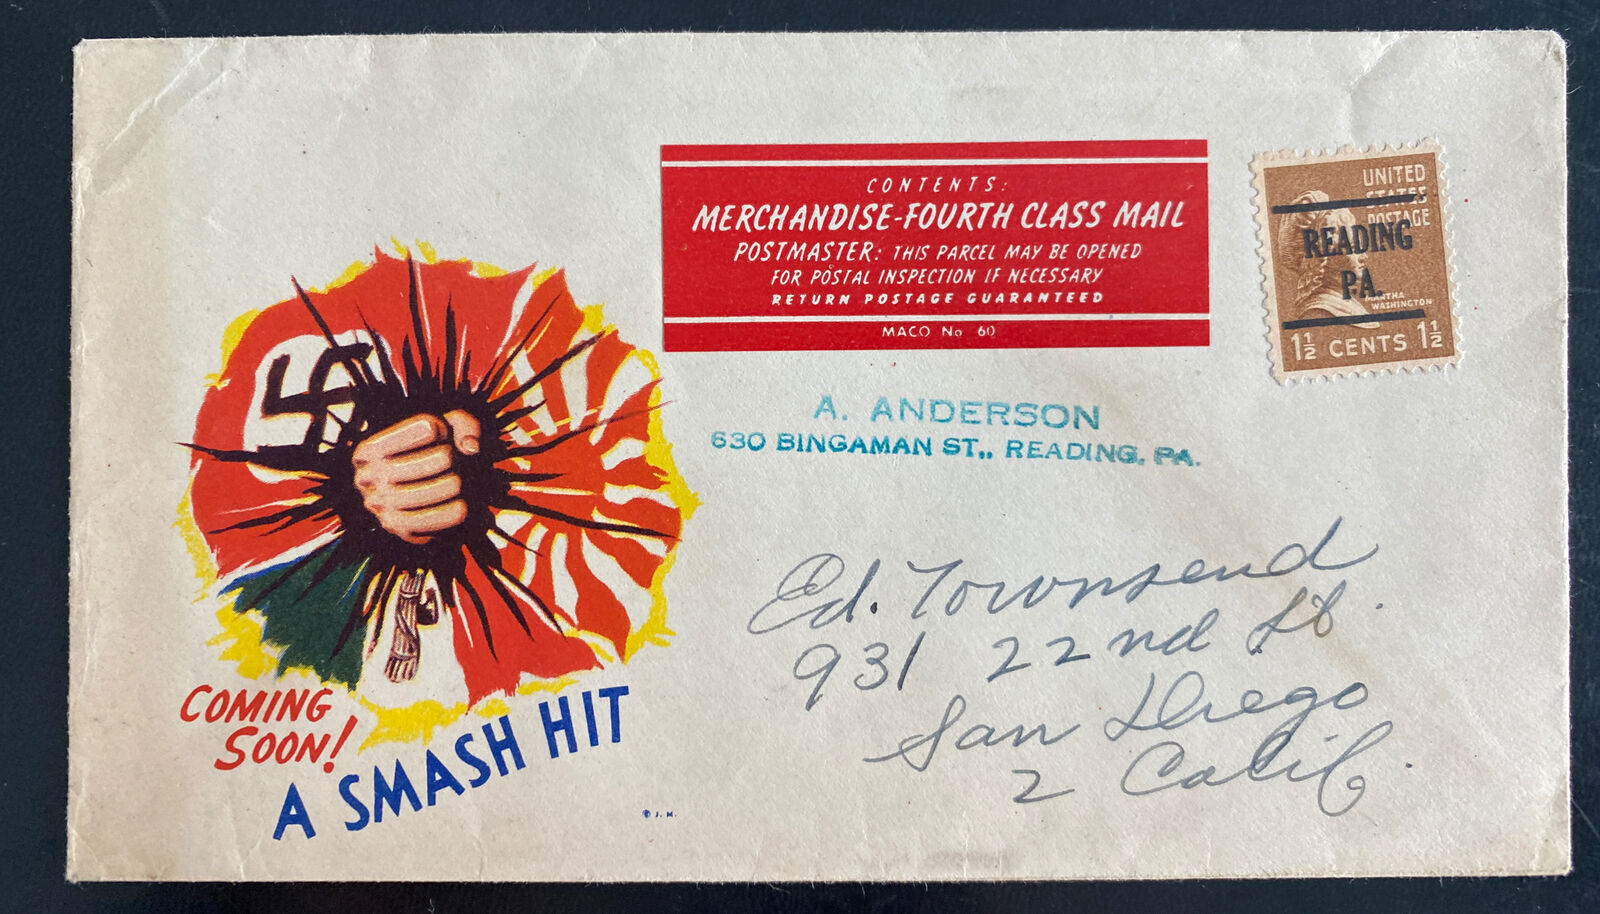 CONTENTS:
MERCHANDISE-FOURTH CLASS MAIL
POSTMASTER: THIS PARCEL MAY BE OPENED
FOR POSTAL INSPECTION IF NECESSARY
RETURN POSTAGE GUARANTEED
MACO No 60
UNITED
STATES
POSTAGE
READING
P.A.
MARTHA
WASHINGTON
1½ CENTS 1½
A. ANDERSON
630 BINGAMAN ST., READING, PA.
Ed. Townsend
931 22nd St.
San Diego
2 Calif.
COMING
SOON!
A SMASH HIT
© J. M.